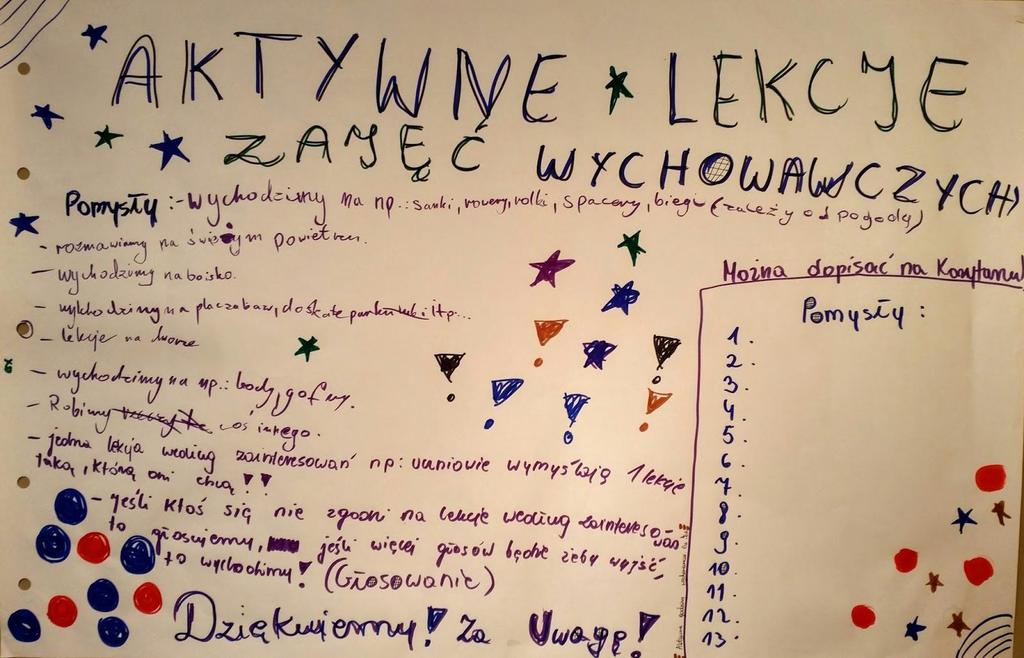 AKTYWNE LEKCJE
ZAJĘĆ WYCHOWAWCZYCH
Pomysły:- Wychodzimy na np.: sanki, rowery, rolki, spacery, biegi (zależy od pogody)
- rozmawiamy na świeżym powietrzu.
- wychodzimy na boisko.
- wychodzimy na plac zabaw, do skate parku itp...
- lekcje na dworze
- wychodzimy na np.: lody, gofry.
- Robimy coś innego.
- jedna lekcja według zainteresowań np: uczniowie wymyślają 1 lekcje
taką, którą oni chcą!!
- jeśli ktoś się nie zgodzi na lekcje według zainteresowań
to głosujemy, jeśli więcej głosów będzie żeby wyjść,
to wychodzimy! (Głosowanie)
Dziękujemy! Za Uwagę!
Można dopisać na
Pomysły:
1.
2.
3.
4.
5.
6.
7.
8.
9.
10.
11.
12.
13.